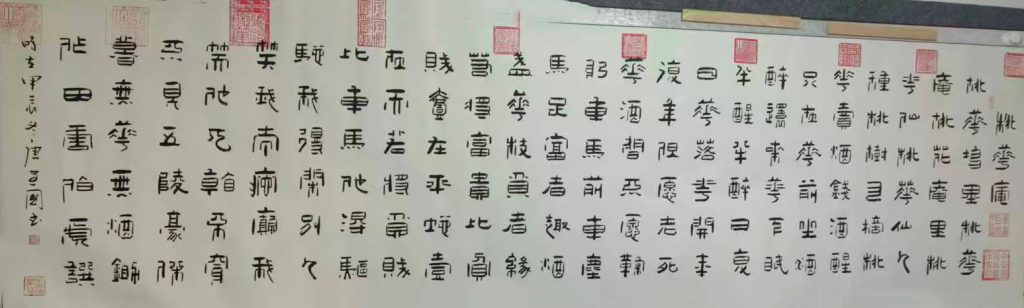 桃華庵
桃華塢里桃華
庵桃花庵里桃
花仙桃華仙人
種桃樹又摘桃
華賣酒錢酒醒
只在華前坐酒
醉還來華下眠
半醒半醉日复
日華落花開年
復年但愿老死
華酒間不愿鞠
躬車馬前車塵
馬足富者趣酒
盞華枝貧者緣
若將富貴比貧
賤壹在平地壹
在天若將貧賤
比車馬他得驅
馳我得閑別人
笑我忒瘋癲我
笑他人看不穿
不見五陵豪傑
墓無華無酒鋤
作田唐伯虎譔
時在甲辰冬唐國書